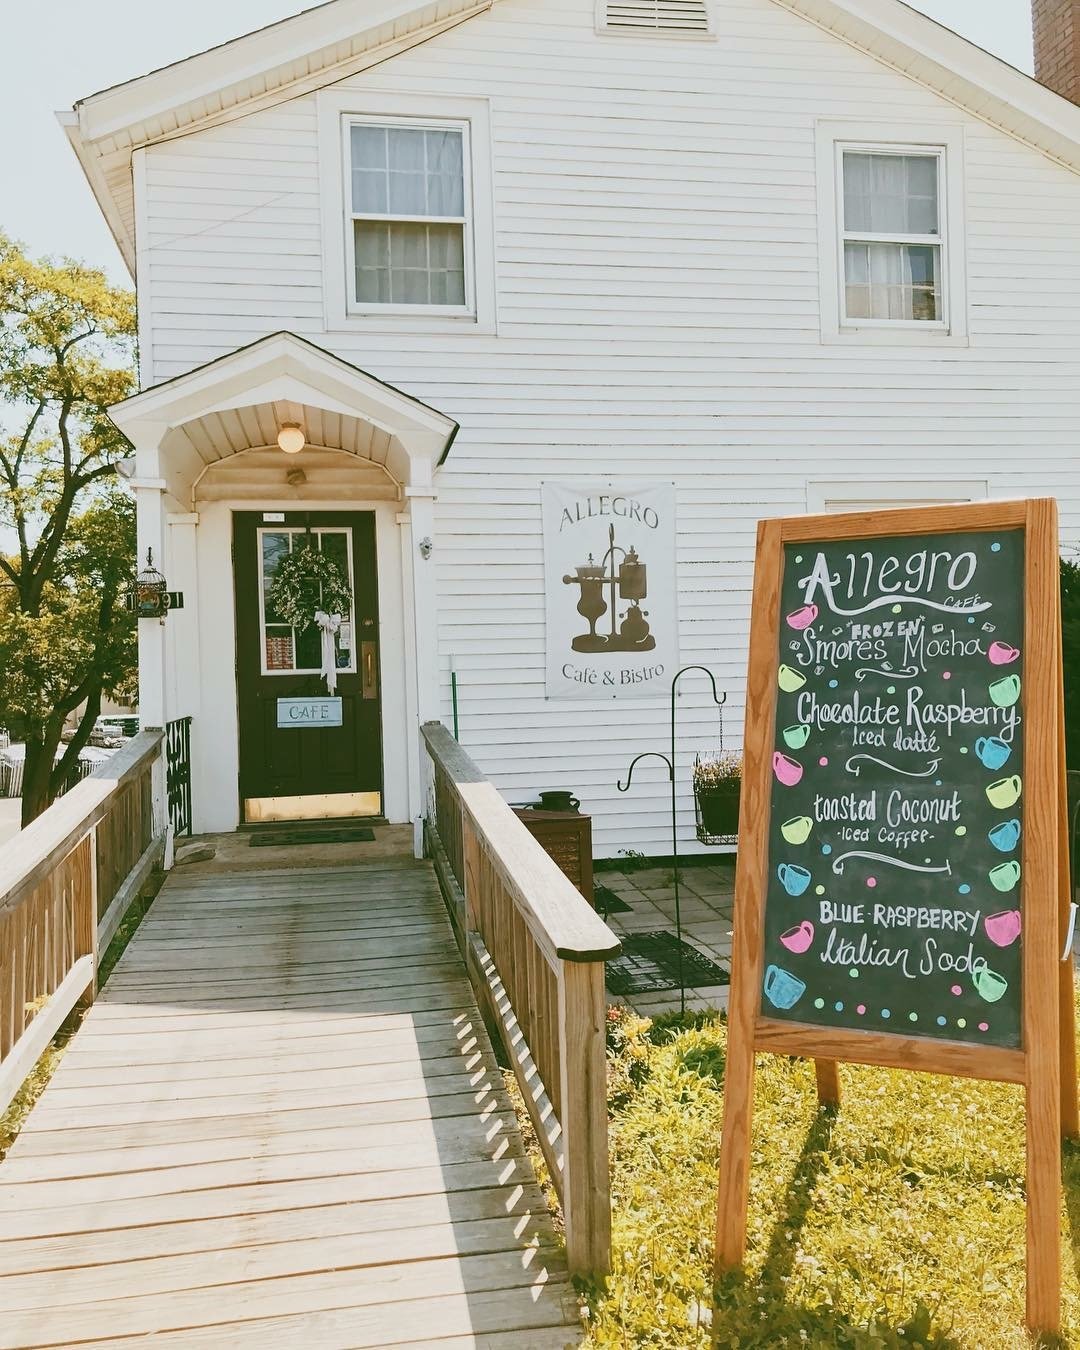 ALLEGRO
Café & Bistro
CAFE
Allegro
CAFÉ
FROZEN
S'mores Mocha
Chocolate Raspberry
Iced latté
toasted Coconut
-Iced Coffee-
BLUE-RASPBERRY
Italian Soda